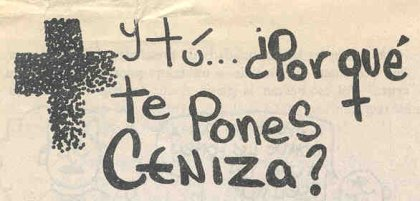 y tú... ¿Por qué
te Pones
CENIZA?